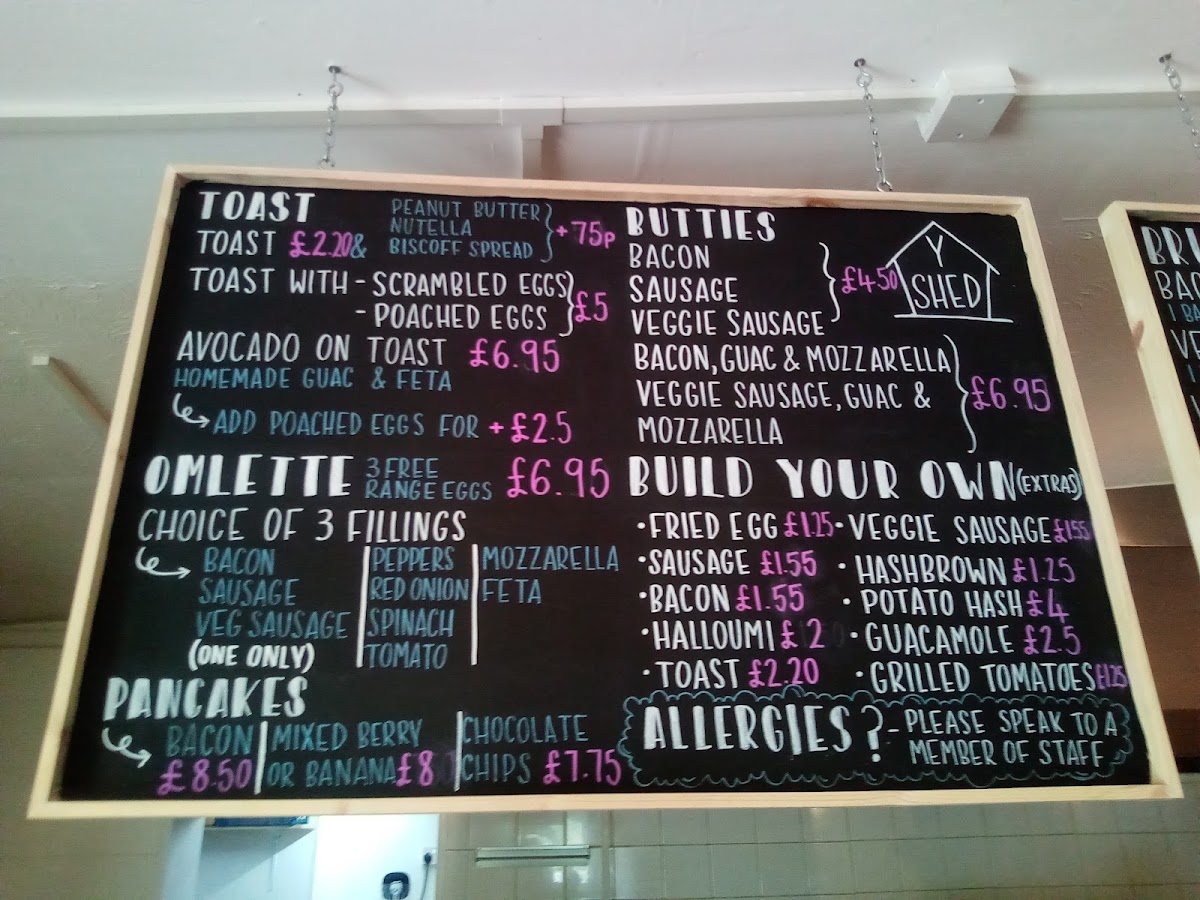 TOAST
TOAST £2.20 &
PEANUT BUTTER
NUTELLA
BISCOFF SPREAD
+ 75p
TOAST WITH - SCRAMBLED EGGS
- POACHED EGGS
£5
AVOCADO ON TOAST £6.95
HOMEMADE GUAC & FETA
ADD POACHED EGGS FOR + £2.5
OMLETTE
3 FREE
RANGE EGGS
£6.95
CHOICE OF 3 FILLINGS
BACON
SAUSAGE
VEG SAUSAGE
(ONE ONLY)
PEPPERS
RED ONION
SPINACH
TOMATO
MOZZARELLA
FETA
PANCAKES
BACON
£8.50
MIXED BERRY
OR BANANA £8
CHOCOLATE
CHIPS £7.75
BUTTIES
BACON
SAUSAGE
VEGGIE SAUSAGE
£4.50
Y
SHED
BACON, GUAC & MOZZARELLA
VEGGIE SAUSAGE, GUAC &
MOZZARELLA
£6.95
BUILD YOUR OWN (EXTRAS)
• FRIED EGG £1.25
• SAUSAGE £1.55
• BACON £1.55
• HALLOUMI £2
• TOAST £2.20
• VEGGIE SAUSAGE £1.55
• HASHBROWN £1.25
• POTATO HASH £4
• GUACAMOLE £2.5
• GRILLED TOMATOES £1.25
ALLERGIES? - PLEASE SPEAK TO A
MEMBER OF STAFF